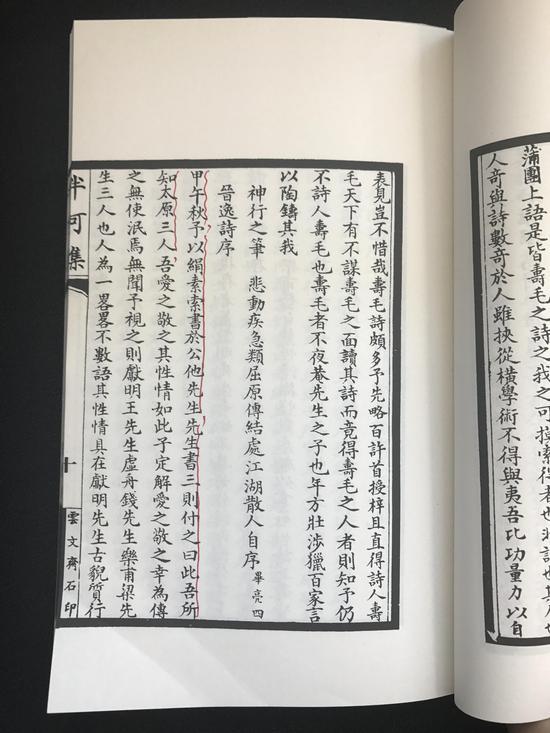 蒲團上語是皆壽毛之詩之我之可摸索得者也
人奇與詩數奇於人雖挾從橫學術不得與夷吾比功量力以自
表見豈不惜哉壽毛詩頗多予先略百許首授梓且直得詩人壽
毛天下有不謀壽毛之面讀其詩而竟得壽毛之人者則知予仍
不詩人壽毛也壽毛者不夜菴先生之子也年方壯涉獵百家言
以陶鑄其我
神行之筆　悲動疾急類屈原傳結處江湖散人自序　畢亮四
晉逸詩序
甲午秋予以絹素索書於公他先生先生書三則付之曰此吾所
知太原三人吾愛之敬之其性情如此子定解愛之敬之幸為傳
之無使泯焉無聞予視之則獻明王先生虛舟錢先生樂甫梁先
生三人也人為一畧畧不數語其性情具在獻明先生古貌質行
半可集
十
雲文齋石印